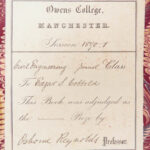 Owens College,
MANCHESTER.
Session 1870-1
Civil Engineering Junior Class
To
This Book was adjudged as
the Prize by
Osborne Reynolds Professor